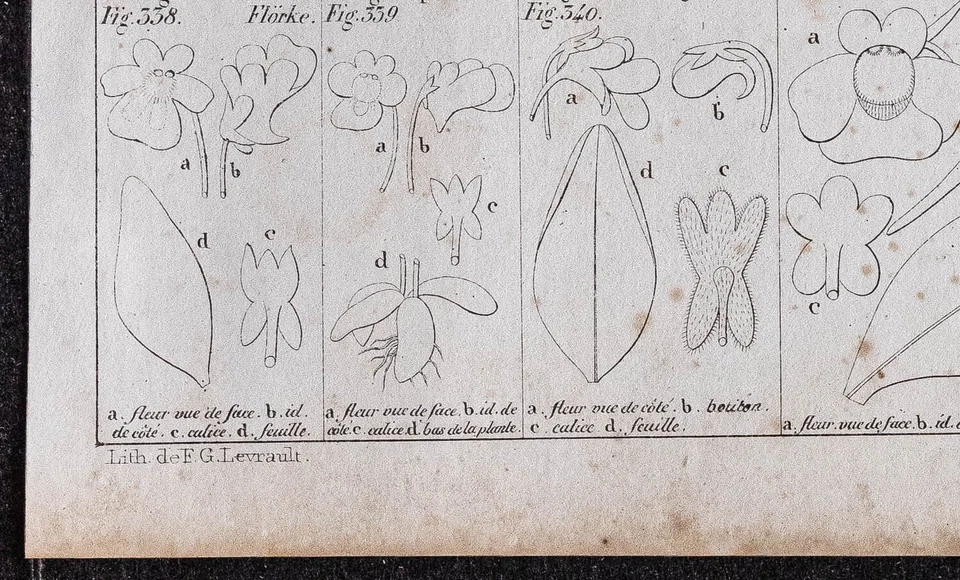 Fig. 338. Flörke. Fig. 339 Fig. 340.
a
a
b
a
b
a
b
d
c
c
d
c
d
c
a. fleur vue de face. b. id.
de côté. c. calice. d. feuille.
a. fleur vue de face. b. id. de
côté. c. calice d. bas de la plante.
a. fleur vue de côté. b. bouton.
c. calice d. feuille.
a. fleur. vue de face. b. id.
Lith. de F. G. Levrault.